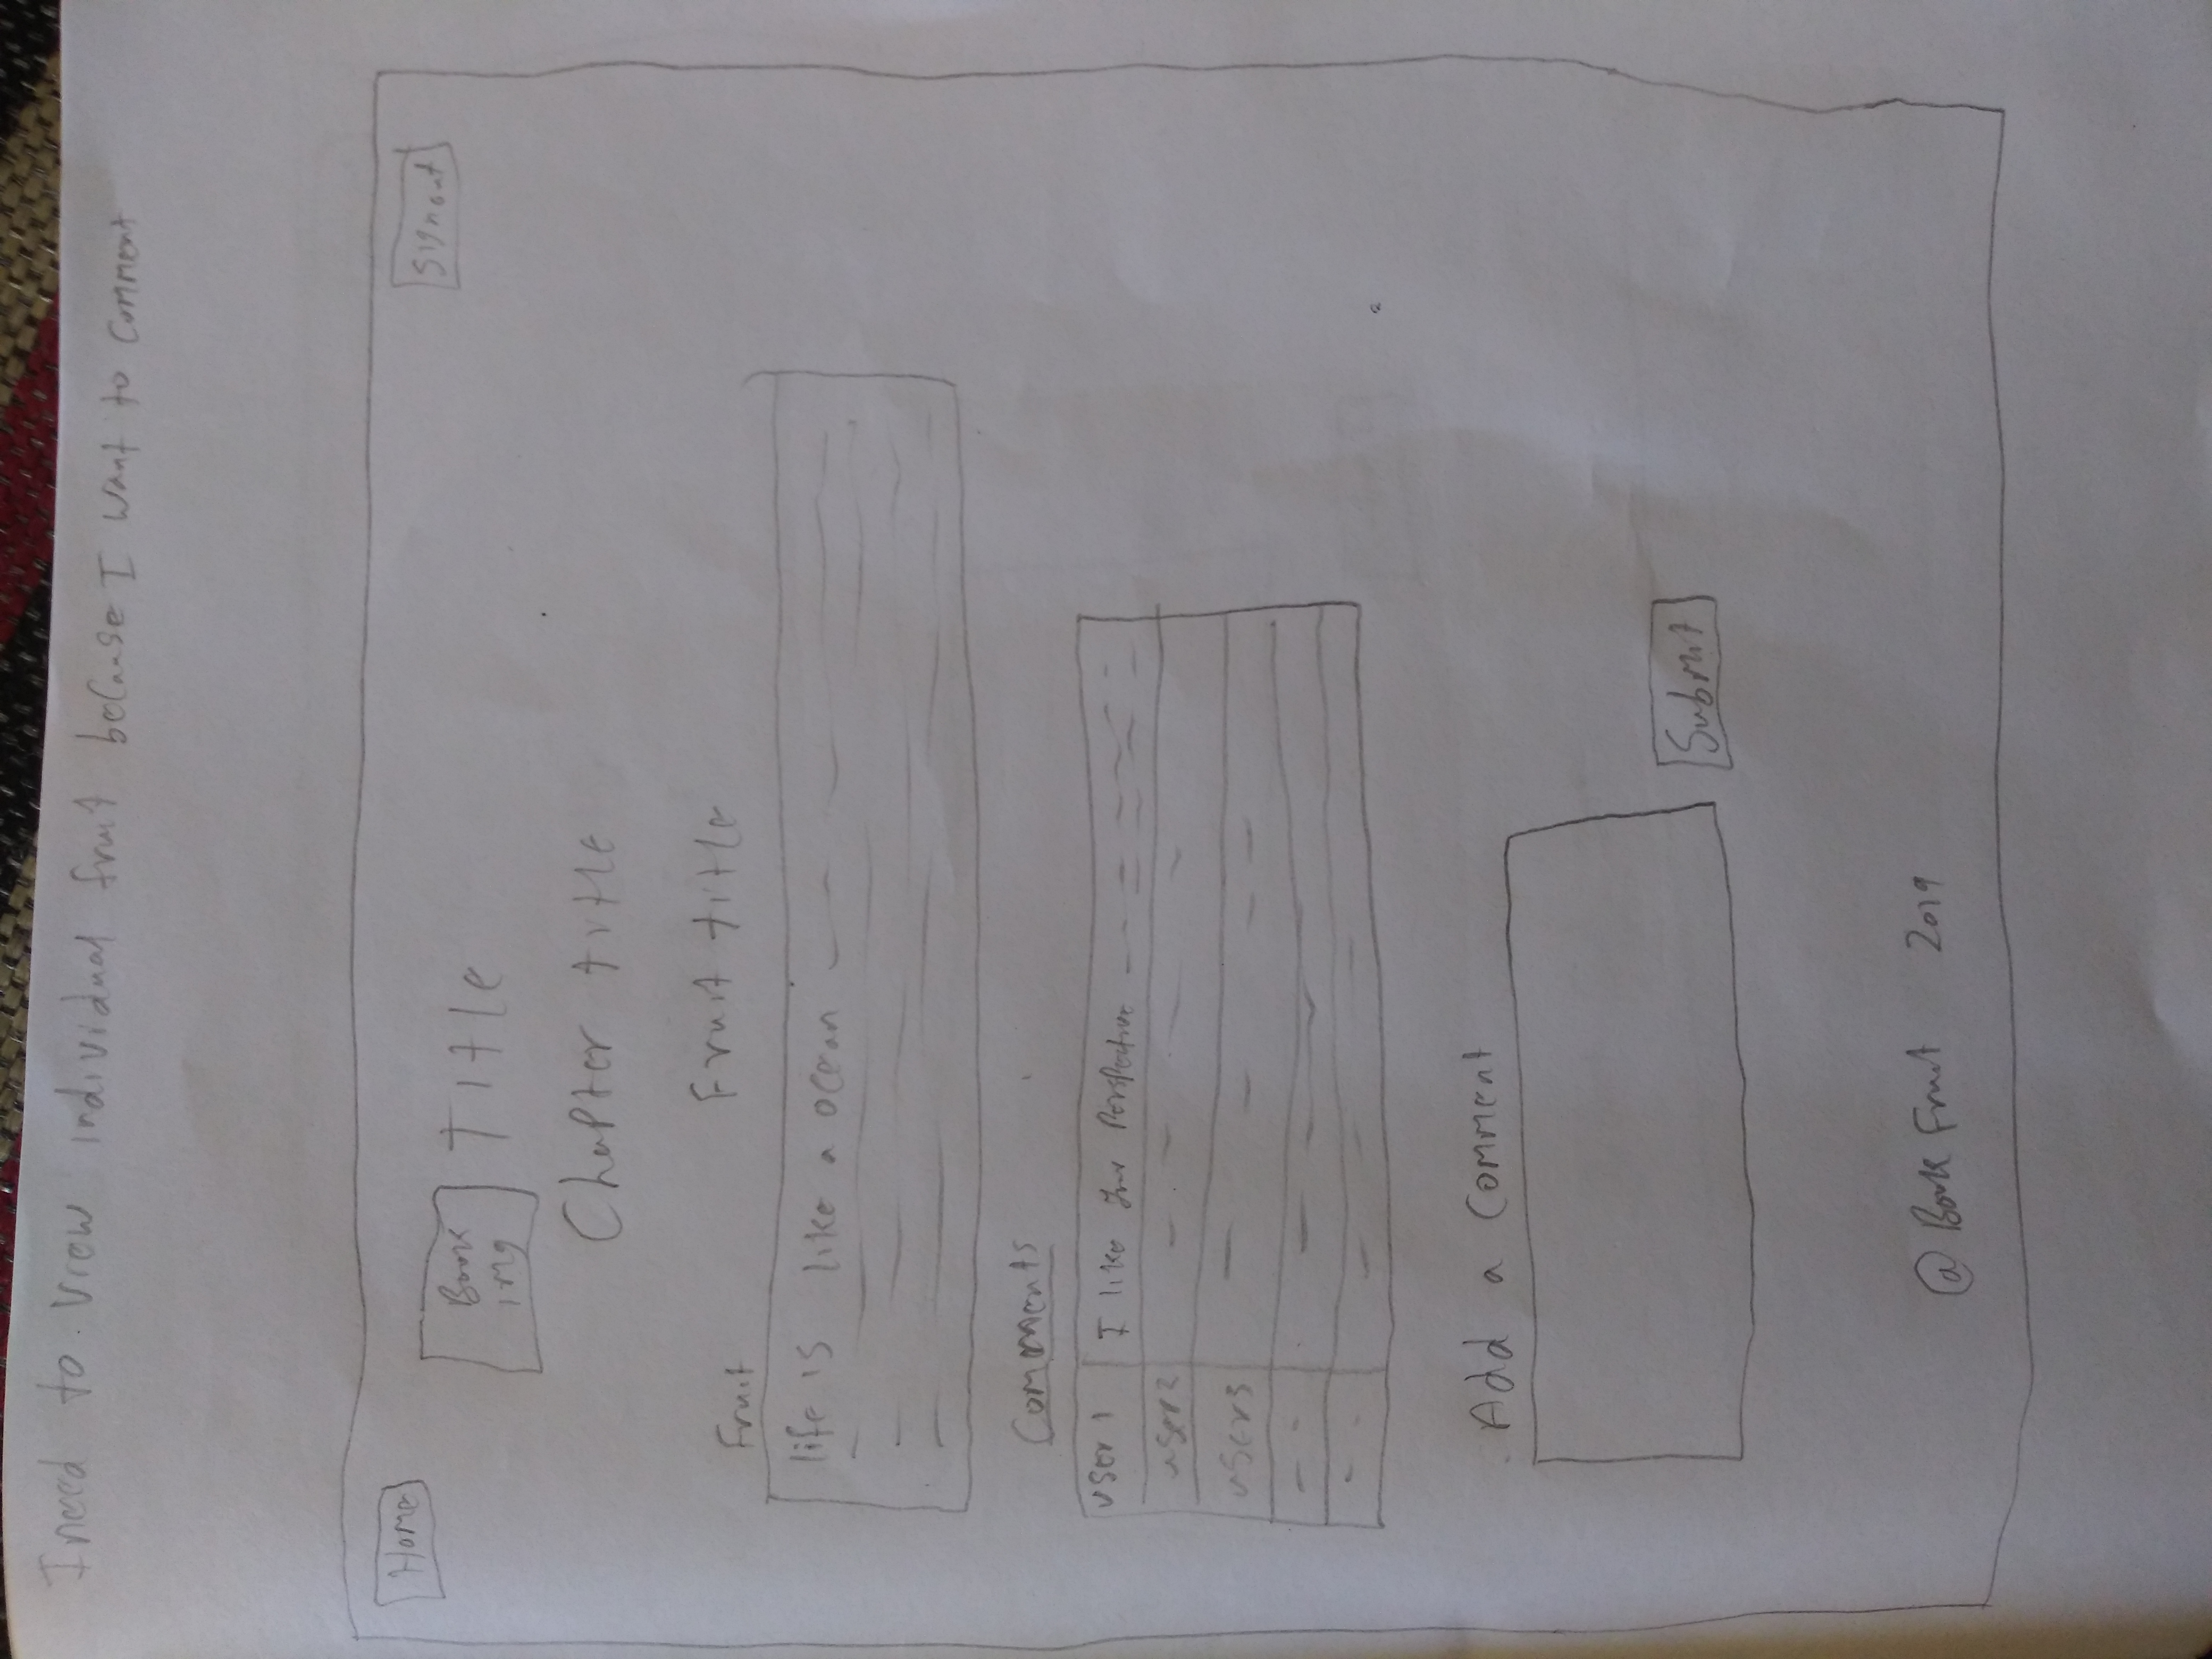 I need to view individual fruit because I want to comment
Home
Signout
Book
img
Title
Chapter title
Fruit title
Fruit
life is like a ocean
Comments
user 1
I like your Perspective
user2
user3
Add a Comment
Submit
@ Book Fruit 2019